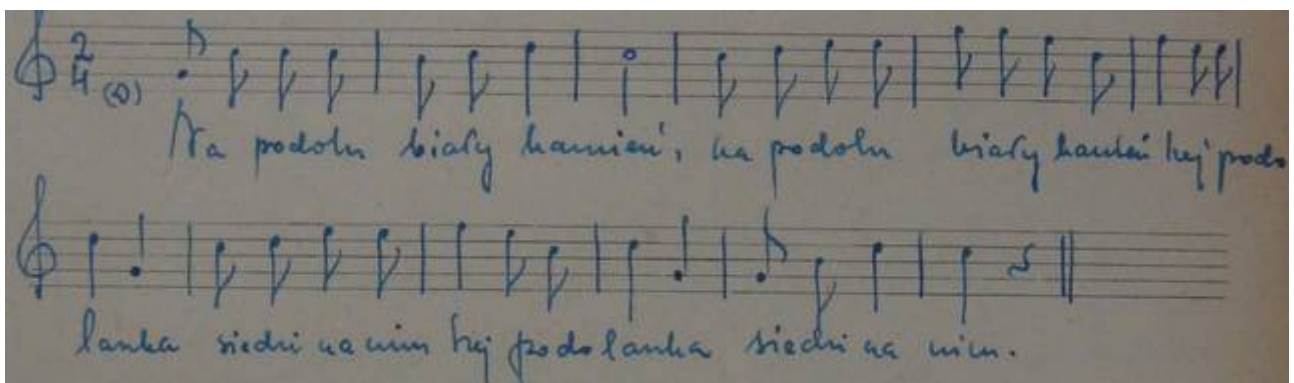 2
4 (D)
Na podolu biały kamień, na podolu biały kamień hej podo
lanka siedzi na nim hej podolanka siedzi na nim.